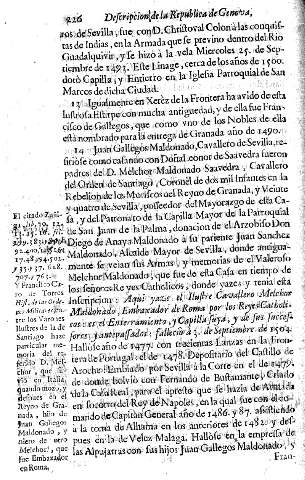 226 Descripcion de la Republica de Genova,
ros de Sevilla, fue con D. Christoval Colon à las conquis-
tas de Indias, en la Armada que se previno dentro del Rio
Guadalquivir, y se hizo à la vela Miercoles 25. de Sep-
tiembre de 1493. Este Linage, cerca de los años de 1500.
dotò Capilla, y Entierro en la Iglesia Parroquial de San
Marcos de dicha Ciudad.
13 Igualmente en Xerèz de la Frontera ha avido de esta
Ilustre Estirpe con mucha antiguedad, y de ella fue Fran-
cisco de Gallegos, que como vno de los Nobles de ella
està nombrado para la entrega de Granada año de 1490.
14 Juan Gallegos Maldonado, Cavallero de Sevilla,
siendo casado con Doña Leonor de Saavedra fueron
padres del D. Melchor Maldonado Saavedra, Cavallero
del Orden de Santiago, Coronel de dos mil Infantes en la
Rebelion de los Moriscos del Reyno de Granada, y Veinte
y quatro de Sevilla, posseedor del Mayorazgo de esta Ca-
sa, y del Patronato de la Capilla Mayor de la Parroquial
de San Juan de la Palma, donacion de el Arzobispo Don
Diego de Anaya Maldonado à su pariente Juan Sanchez
Maldonado, Alcalde Mayor de Sevilla, donde antigua-
mente se veìan sus Armas, y memorias de el Valeroso
Melchor Maldonado, que fue de esta Casa en tiempo de
los señores Reyes Catholicos, donde yaze, y tenia esta
inscripcion: Aqui yaze el Ilustre Cavallero Melchor
Maldonado, Embaxador de Roma por los Reyes Catholi-
cos: es el Enterramiento, y Capilla suya, y de sus succesó-
res, y antepassados: falleciò à 5. de Septiembre de 1504.
Hallòse año de 1477. con trecientas Lanzas en la Fron-
tera de Portugal: el de 1478. Depositario del Castillo de
Azoche: Embiado por Sevilla à la Corte en el de 1479.
de donde bolviò con Fernando de Bustamante, Criado
de la Casa Real, para el apresto que se hazia de Armada
en socorro del Rey de Napoles, en la qual fue con el co-
mando de Capitan General año de 1486. y 87. assistiendo
à la toma de Alhama en los anteriores de 1482. y des-
pues en la de Velez Malaga. Hallòse en la empressa de
las Alpujarras con sus hijos Juan Gallegos Maldonado, y
Fran-
El citado
y Francisco Ca-
Torres
los Varones
Ilustres de la de
Santiago haze
particular me-
moria del re-
ferido D. Mel-
chor, que sir-
viò en Italia,
quando mozo, y
despues en el
Reyno de Gra-
nada, hijo de
Juan Gallegos
Maldonado, y
nieto de otro
Melchor, que
fue Embaxador
en Roma,